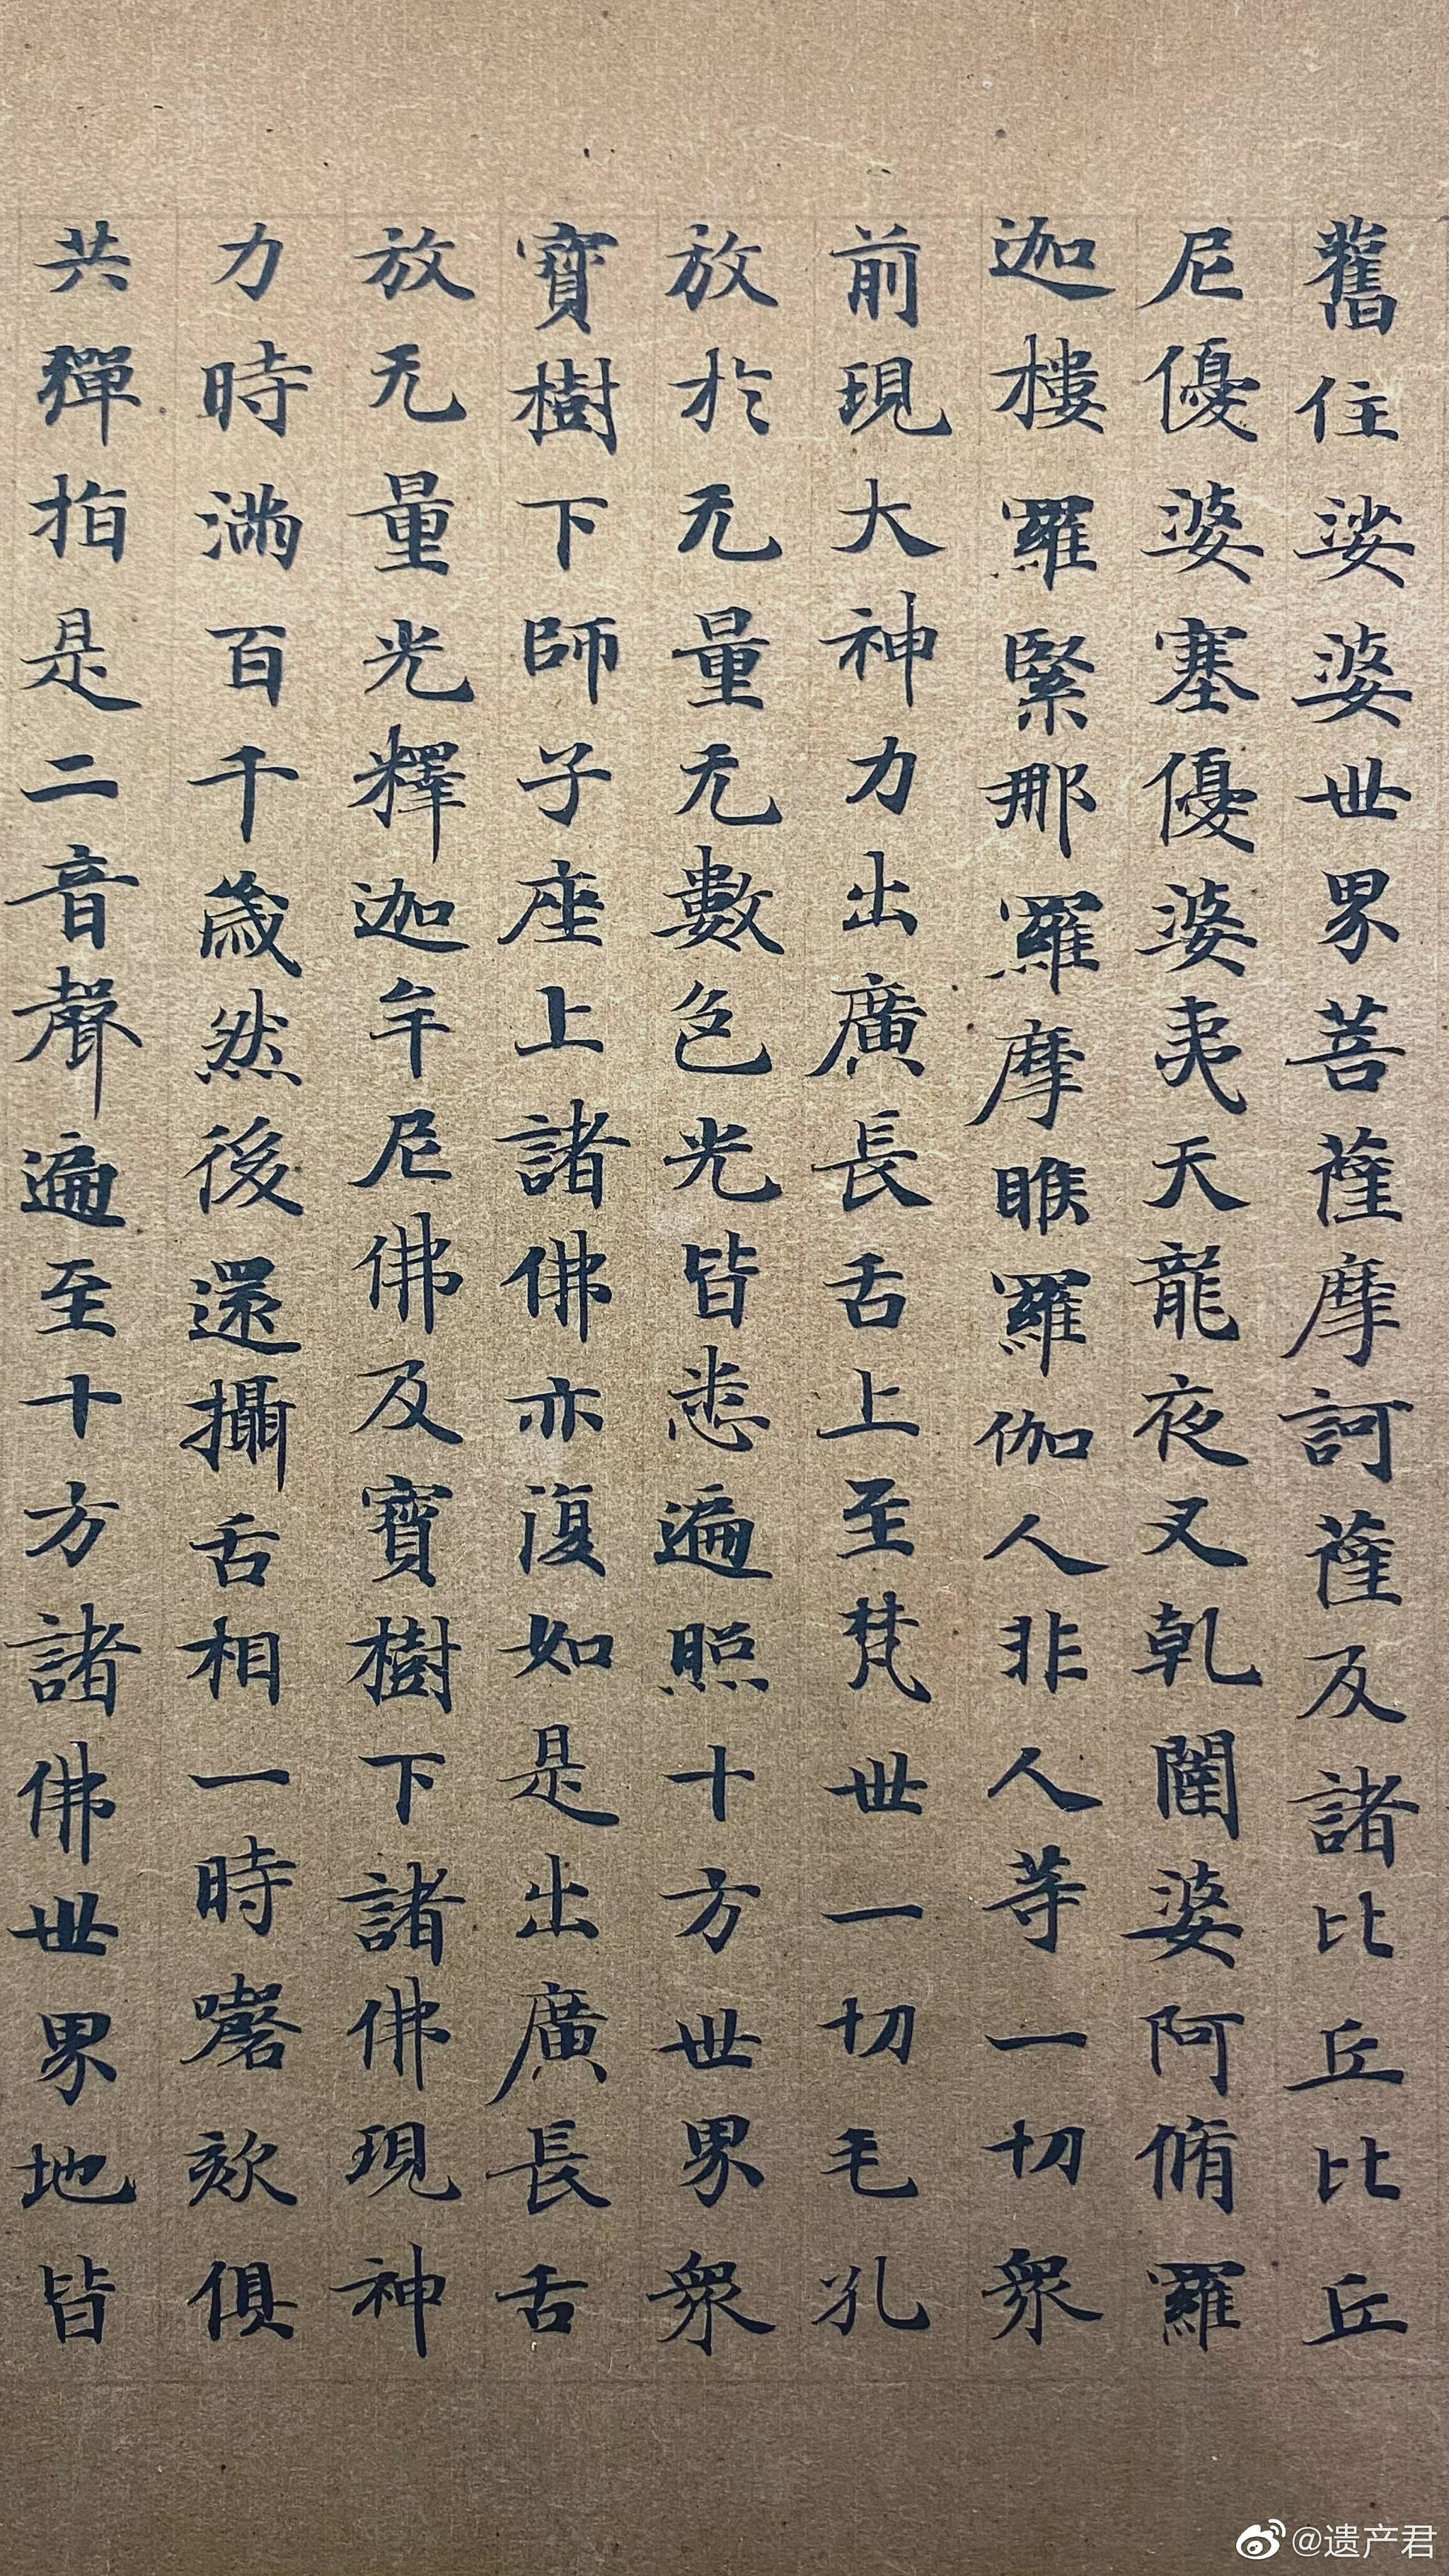 舊住娑婆世界菩薩摩訶薩及諸比丘比丘
尼優婆塞優婆夷天龍夜叉乹闥婆阿脩羅
迦樓羅緊那羅摩睺羅伽人非人等一切衆
前現大神力出廣長舌上至梵世一切毛孔
放於无量无數色光皆悉遍照十方世界衆
寶樹下師子座上諸佛亦復如是出廣長舌
放无量光釋迦牟尼佛及寶樹下諸佛現神
力時滿百千歳然後還攝舌相一時謦欬俱
共彈指是二音聲遍至十方諸佛世界地皆
@遗产君